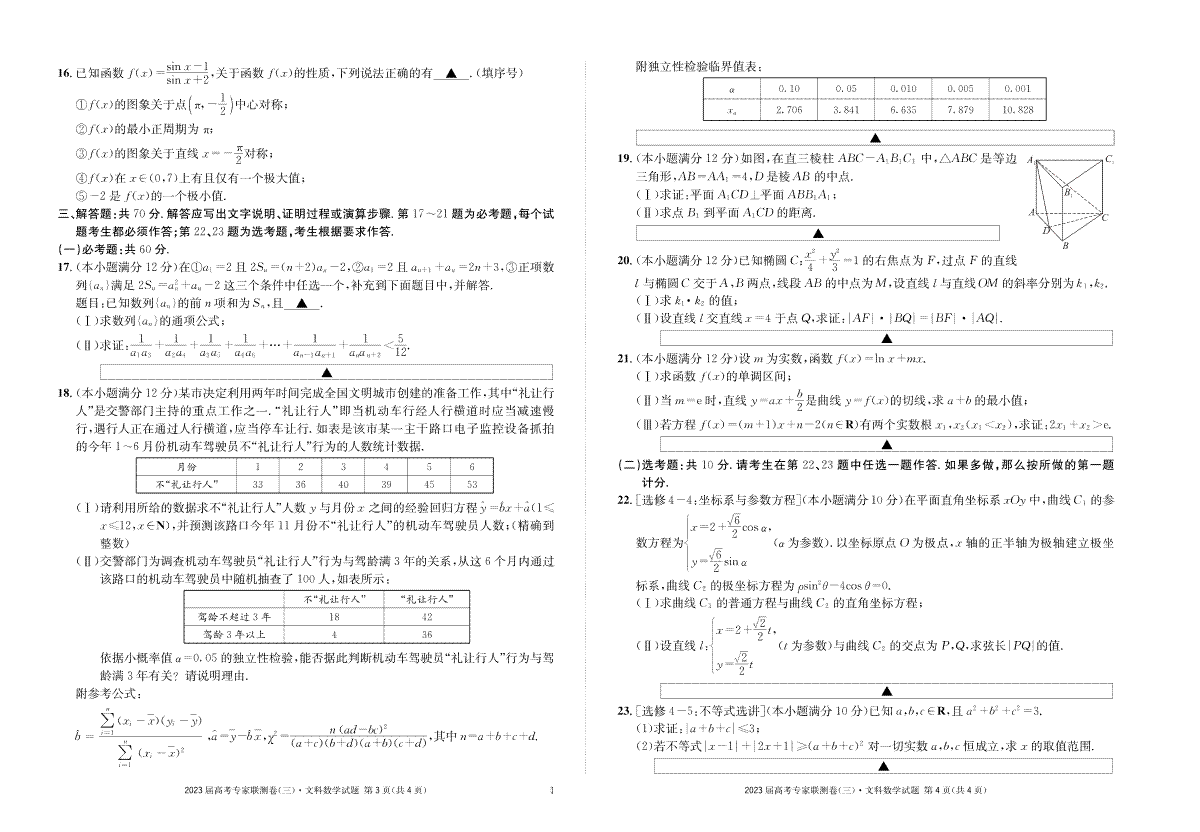 16. 已知函数 f(x)=\frac{\sin x-1}{\sin x+2},关于函数 f(x)的性质,下列说法正确的有 ▲ .(填序号)
①f(x)的图象关于点(π,-\frac{1}{2})中心对称;
②f(x)的最小正周期为 π;
③f(x)的图象关于直线 x=-\frac{π}{2}对称;
④f(x)在 x∈(0,7)上有且仅有一个极大值;
⑤-2 是 f(x)的一个极小值.
三、解答题:共 70 分.解答应写出文字说明、证明过程或演算步骤.第 17～21 题为必考题,每个试
题考生都必须作答;第 22、23 题为选考题,考生根据要求作答.
(一)必考题:共 60 分.
17. (本小题满分 12 分)在①a₁=2 且 2Sₙ=(n+2)aₙ-2,②a₁=2 且 aₙ₊₁+aₙ=2n+3,③正项数
列{aₙ}满足 2Sₙ=aₙ²+aₙ-2 这三个条件中任选一个,补充到下面题目中,并解答.
题目:已知数列{aₙ}的前 n 项和为 Sₙ,且 ▲ .
(Ⅰ)求数列{aₙ}的通项公式;
(Ⅱ)求证:\frac{1}{a₁a₃}+\frac{1}{a₂a₄}+\frac{1}{a₃a₅}+\frac{1}{a₄a₆}+…+\frac{1}{aₙ₋₁aₙ₊₁}+\frac{1}{aₙaₙ₊₂}<\frac{5}{12}.
▲
18. (本小题满分 12 分)某市决定利用两年时间完成全国文明城市创建的准备工作,其中“礼让行
人”是交警部门主持的重点工作之一.“礼让行人”即当机动车行经人行横道时应当减速慢
行,遇行人正在通过人行横道,应当停车让行.如表是该市某一主干路口电子监控设备抓拍
的今年 1～6 月份机动车驾驶员不“礼让行人”行为的人数统计数据.
月份 1 2 3 4 5 6
不“礼让行人” 33 36 40 39 45 53
(Ⅰ)请利用所给的数据求不“礼让行人”人数 y 与月份 x 之间的经验回归方程 ŷ=b̂x+â(1≤
x≤12,x∈N),并预测该路口今年 11 月份不“礼让行人”的机动车驾驶员人数;(精确到
整数)
(Ⅱ)交警部门为调查机动车驾驶员“礼让行人”行为与驾龄满 3 年的关系,从这 6 个月内通过
该路口的机动车驾驶员中随机抽查了 100 人,如表所示:
不“礼让行人” “礼让行人”
驾龄不超过 3 年 18 42
驾龄 3 年以上 4 36
依据小概率值 α=0.05 的独立性检验,能否据此判断机动车驾驶员“礼让行人”行为与驾
龄满 3 年有关? 请说明理由.
附参考公式:
b̂=\frac{\sum_{i=1}^{n}(x_i-\bar{x})(y_i-\bar{y})}{\sum_{i=1}^{n}(x_i-\bar{x})^2},â=ȳ-b̂x̄,χ²=\frac{n(ad-bc)²}{(a+c)(b+d)(a+b)(c+d)},其中 n=a+b+c+d.
2023 届高考专家联测卷(三)·文科数学试题 第 3 页(共 4 页)
附独立性检验临界值表:
α 0.10 0.05 0.010 0.005 0.001
xα 2.706 3.841 6.635 7.879 10.828
▲
19. (本小题满分 12 分)如图,在直三棱柱 ABC-A₁B₁C₁ 中,△ABC 是等边
三角形,AB=AA₁=4,D 是棱 AB 的中点.
(Ⅰ)求证:平面 A₁CD⊥平面 ABB₁A₁;
(Ⅱ)求点 B₁ 到平面 A₁CD 的距离.
A₁ C₁
B₁
A C
D
B
▲
20. (本小题满分 12 分)已知椭圆 C:\frac{x²}{4}+\frac{y²}{3}=1 的右焦点为 F,过点 F 的直线
l 与椭圆 C 交于 A,B 两点,线段 AB 的中点为 M,设直线 l 与直线 OM 的斜率分别为 k₁,k₂.
(Ⅰ)求 k₁·k₂ 的值;
(Ⅱ)设直线 l 交直线 x=4 于点 Q,求证:|AF|·|BQ|=|BF|·|AQ|.
▲
21. (本小题满分 12 分)设 m 为实数,函数 f(x)=ln x+mx.
(Ⅰ)求函数 f(x)的单调区间;
(Ⅱ)当 m=e 时,直线 y=ax+\frac{b}{2}是曲线 y=f(x)的切线,求 a+b 的最小值;
(Ⅲ)若方程 f(x)=(m+1)x+n-2(n∈R)有两个实数根 x₁,x₂(x₁<x₂),求证:2x₁+x₂>e.
▲
(二)选考题:共 10 分.请考生在第 22、23 题中任选一题作答.如果多做,那么按所做的第一题
计分.
22. [选修 4-4:坐标系与参数方程](本小题满分 10 分)在平面直角坐标系 xOy 中,曲线 C₁ 的参
数方程为{x=2+\frac{\sqrt{6}}{2}cos α, y=\frac{\sqrt{6}}{2}sin α (α 为参数).以坐标原点 O 为极点,x 轴的正半轴为极轴建立极坐
标系,曲线 C₂ 的极坐标方程为 ρsin²θ-4cos θ=0.
(Ⅰ)求曲线 C₁ 的普通方程与曲线 C₂ 的直角坐标方程;
(Ⅱ)设直线 l:{x=2+\frac{\sqrt{2}}{2}t, y=\frac{\sqrt{2}}{2}t (t 为参数)与曲线 C₂ 的交点为 P,Q,求弦长|PQ|的值.
▲
23. [选修 4-5:不等式选讲](本小题满分 10 分)已知 a,b,c∈R,且 a²+b²+c²=3.
(1)求证:|a+b+c|≤3;
(2)若不等式|x-1|+|2x+1|≥(a+b+c)² 对一切实数 a,b,c 恒成立,求 x 的取值范围.
▲
2023 届高考专家联测卷(三)·文科数学试题 第 4 页(共 4 页)